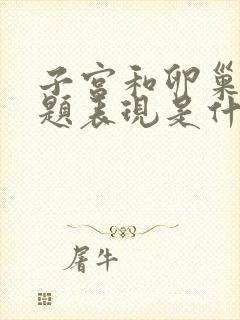 子宫和卵巢
题表现是什
屠牛